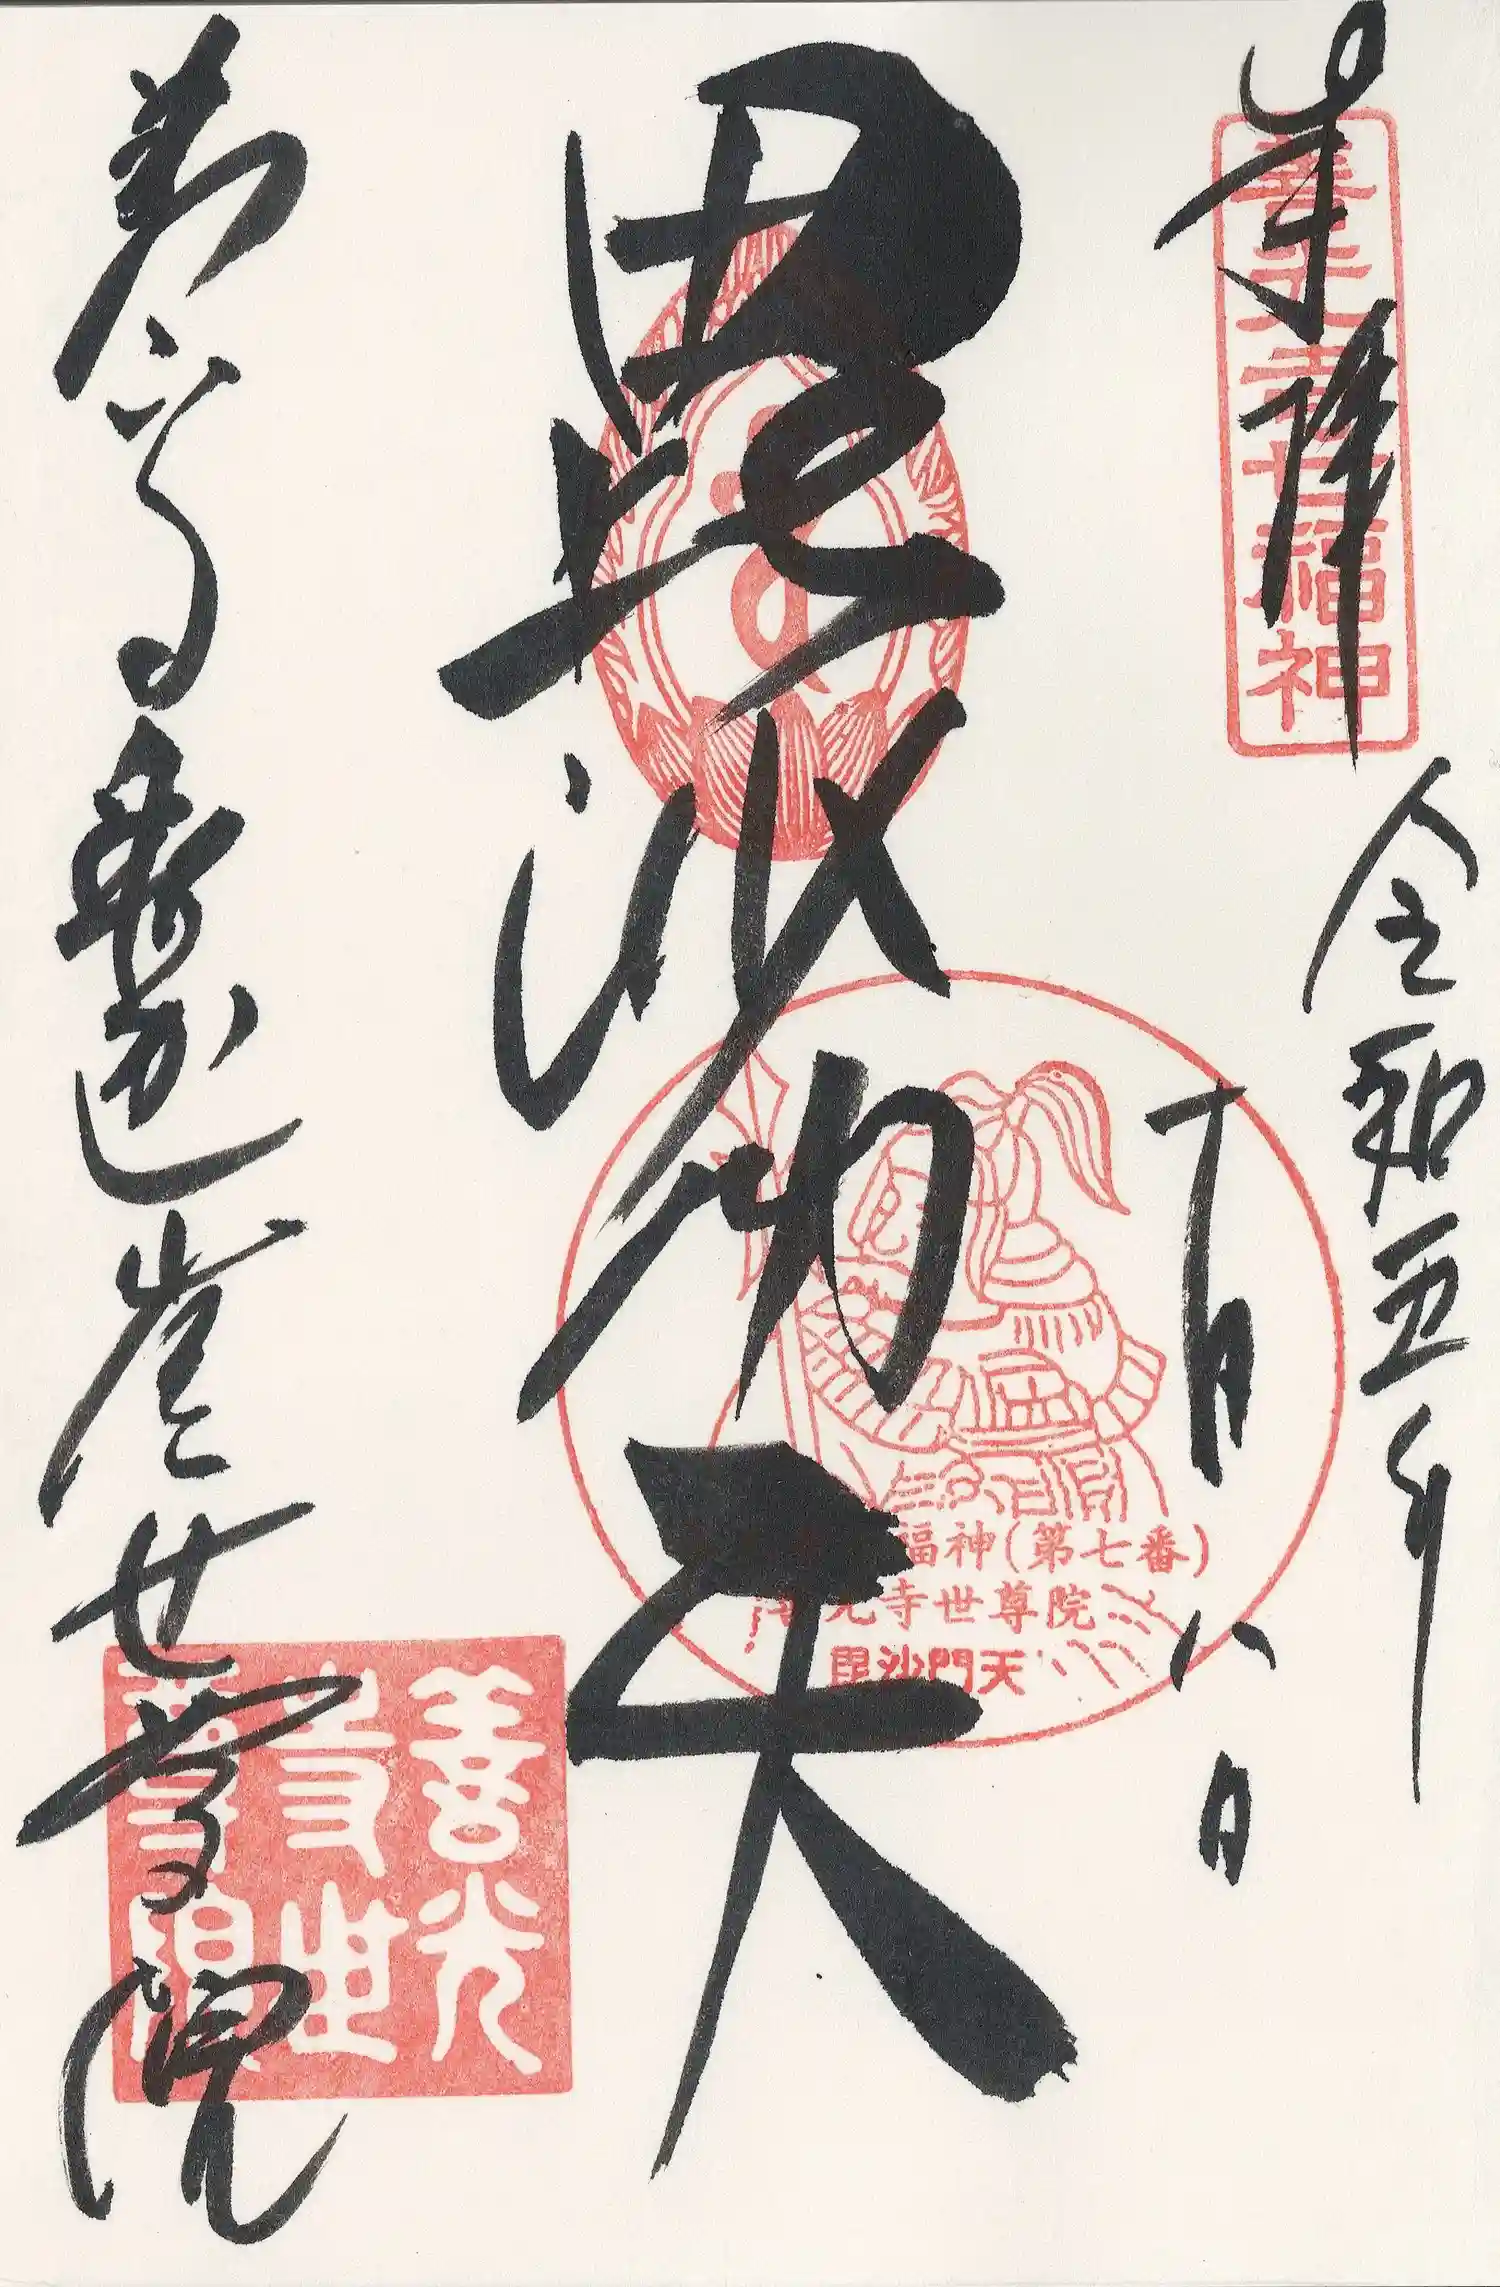 奉拝
善光寺七福神
令和五年
十月八日
毘沙門天
福神(第七番)
光寺世尊院
毘沙門天
善光寺釋迦堂世尊院
善光寺世尊院